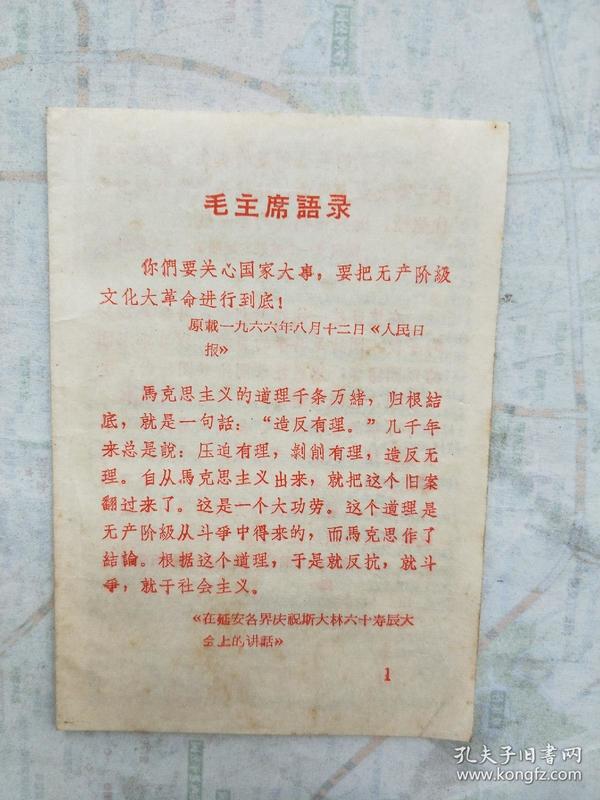 毛主席語录
你們要关心国家大事，要把无产阶級
文化大革命进行到底！
原載一九六六年八月十二日《人民日
报》
馬克思主义的道理千条万緒，归根結
底，就是一句話：“造反有理。”几千年
来总是說：压迫有理，剝削有理，造反无
理。自从馬克思主义出来，就把这个旧案
翻过来了。这是一个大功劳。这个道理是
无产阶級从斗爭中得来的，而馬克思作了
結論。根据这个道理，于是就反抗，就斗
爭，就干社会主义。
《在延安各界庆祝斯大林六十寿辰大
会上的讲話》
1
孔夫子旧书网
www.kongfz.com